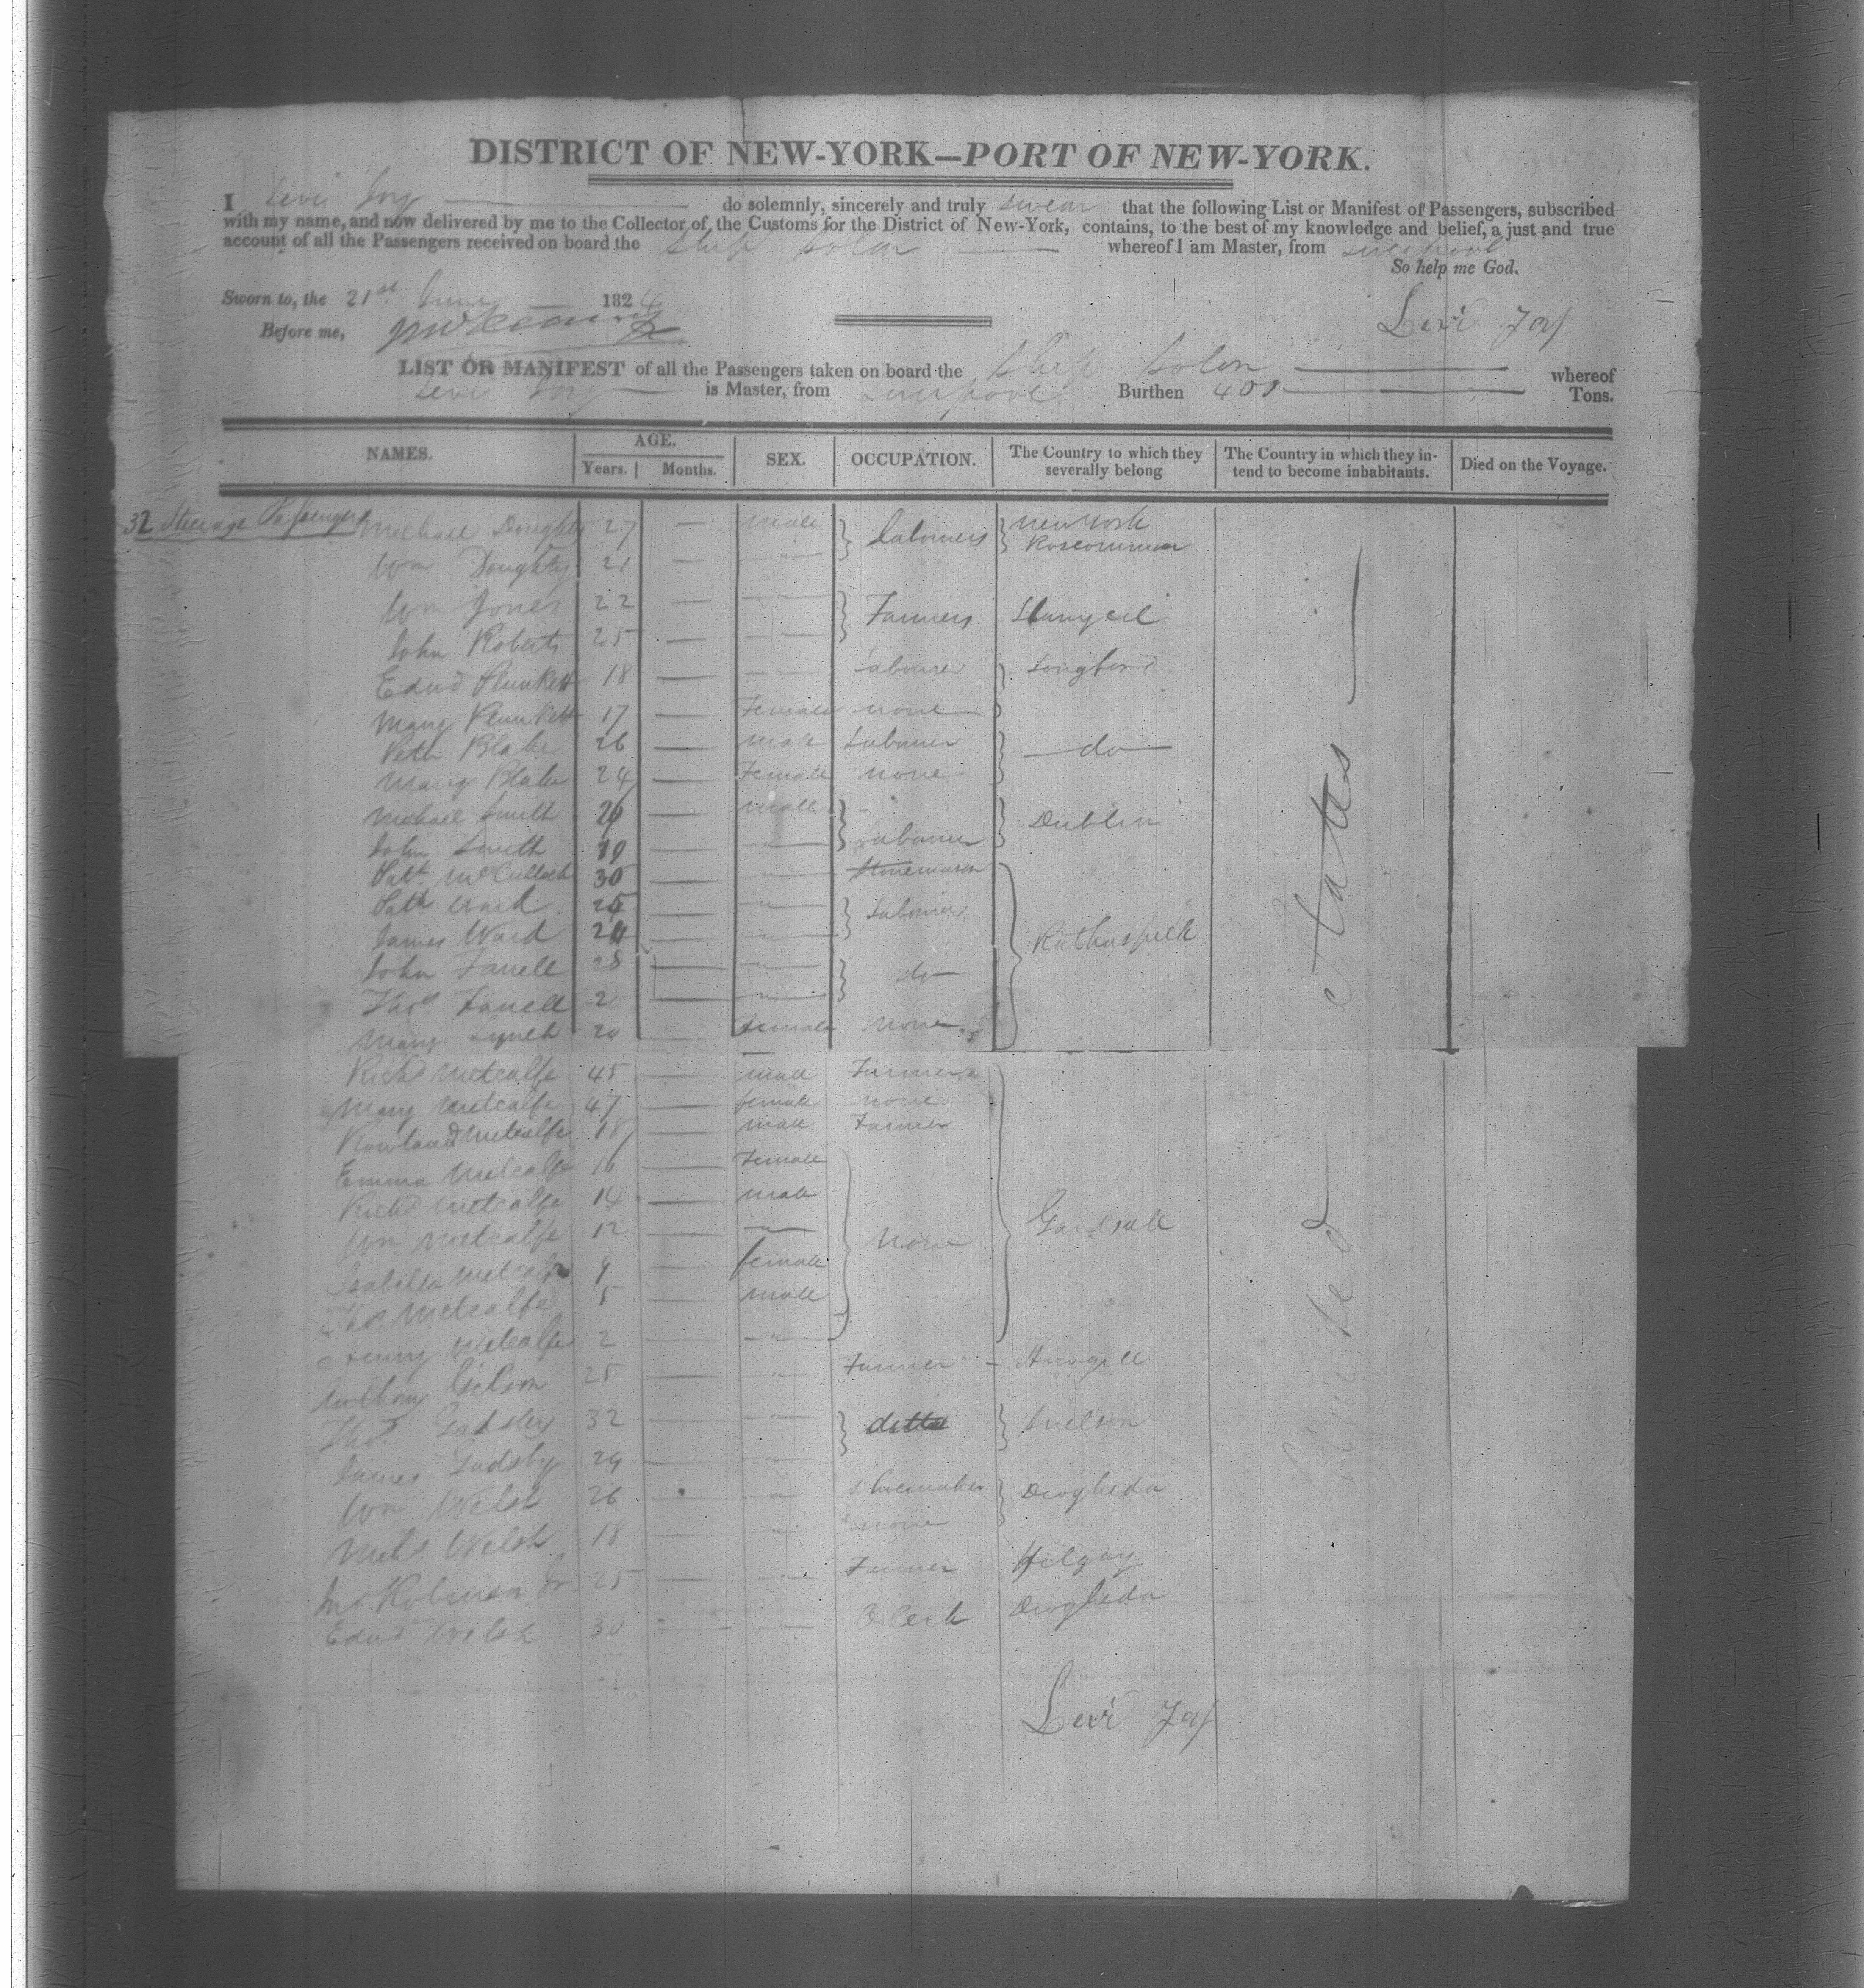 DISTRICT OF NEW-YORK—PORT OF NEW-YORK.
I Levi Joy do solemnly, sincerely and truly swear that the following List or Manifest of Passengers, subscribed
with my name, and now delivered by me to the Collector of the Customs for the District of New-York, contains, to the best of my knowledge and belief, a just and true
account of all the Passengers received on board the Ship Solon whereof I am Master, from Liverpool
So help me God.
Sworn to, the 21st June 1824
Levi Joy
Before me,
LIST OR MANIFEST of all the Passengers taken on board the Ship Solon whereof
Levi Joy is Master, from Liverpool Burthen 400 Tons.
NAMES. AGE. Years. Months. SEX. OCCUPATION. The Country to which they severally belong The Country in which they intend to become inhabitants. Died on the Voyage.
32 Steerage Passengers
Michael Doughty 27 — male Labourers New York
Roscommon
Wm Doughty 21 — "
Wm Jones 22 — " Farmers
John Roberts 25 — "
Edwd Plunkett 18 — " Labourer Longford
Mary Plunkett 17 — Female none
Peter Blake 26 — male Labourer do
Mary Blake 24 — Female none
Michael Smith male Dublin
John Smith 19 — " Labourer
Patk McCulloch 30 — " Stonemason
Patk Ward — " Labourers
James Ward — " Rathaspeck
John Farrell 28 — " do
Thos Farrell 20 — "
Mary Lynch 20 female none
Richd Metcalfe 45 — male Farmer
Mary Metcalfe 47 — female none
Rowland Metcalfe 18 — male Farmer
Emma Metcalfe 16 — Female
Richd Metcalfe 14 — male
Wm Metcalfe 12 — " None
Isabella Metcalfe 9 — female
Thos Metcalfe 5 — male
Henry Metcalfe 2 — "
Anthony Gibson 25 — " Farmer
Thos Gadsby 32 — " ditto
James Gadsby 29 — "
Wm Welsh 26 — " Shoemaker Drogheda
Michl Welsh 18 — " none
Jno Robinson Jr 25 — " Farmer Hilgay
Edwd Welsh 30 — " Clerk Drogheda
United States
Levi Joy